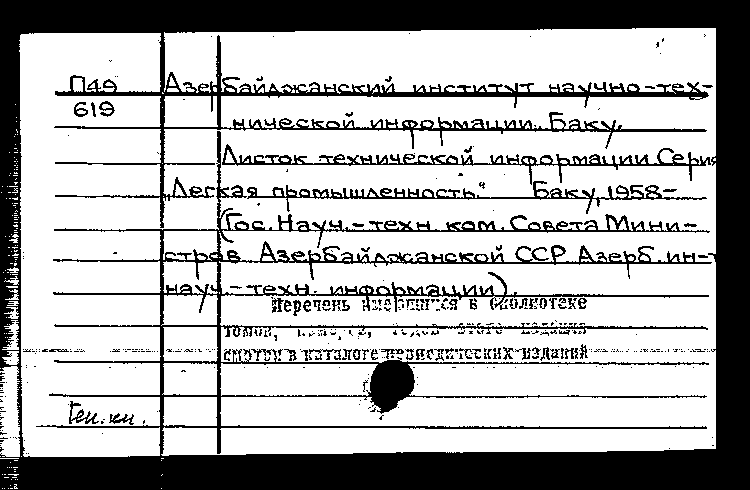 П49 Азербайджанский институт научно-тех-
619
нической информации. Баку.
Листок технической информации Серия
„Легкая промышленность." Баку, 1958-
(Гос. Науч.-техн. ком. Совета Мини-
стров Азербайджанской ССР Азерб. ин-т
науч.-техн. информации).
Перечень имеющихся в библиотеке
томов, годов этого издания
смотри в каталоге периодических изданий
Ген. кн.